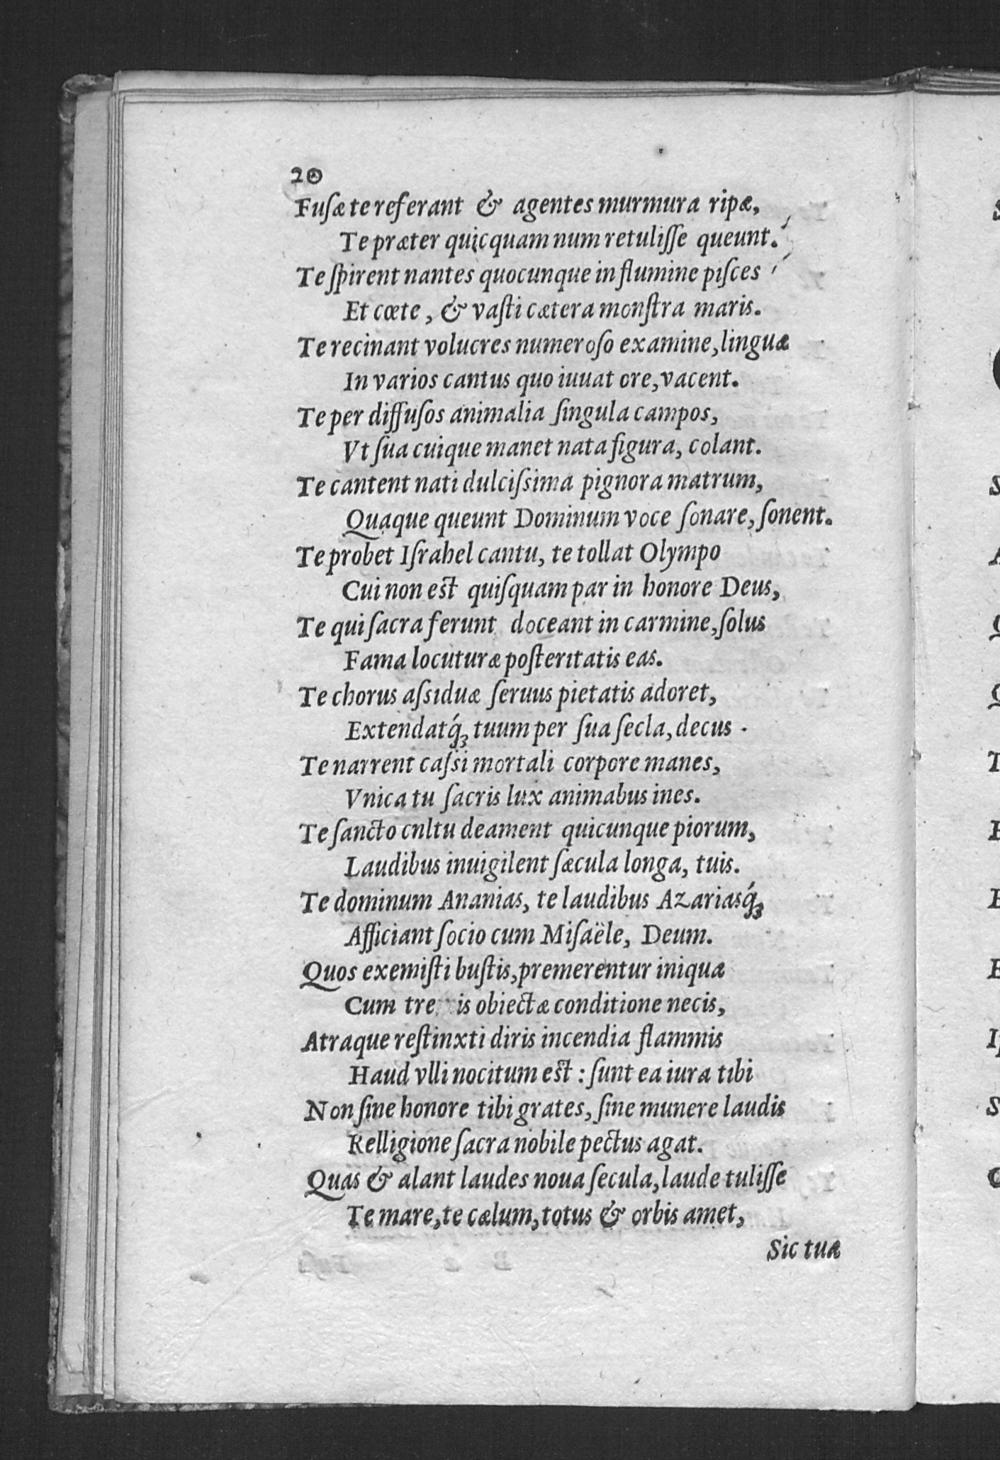 20
Fuſæ te referant & agentes murmura ripæ,
Te præter quicquam num retuliſſe queunt.
Te ſpirent nantes quocunque in flumine piſces
Et cœte, & vaſti cætera monſtra maris.
Te recinant volucres numeroſo examine, linguæ
In varios cantus quo iuuat ore, vacent.
Te per diffuſos animalia ſingula campos,
Vt ſua cuique manet nata figura, colant.
Te cantent nati dulciſsima pignora matrum,
Quaque queunt Dominum voce ſonare, ſonent.
Te probet Iſrahel cantu, te tollat Olympo
Cui non eſt quiſquam par in honore Deus,
Te qui ſacra ferunt doceant in carmine, ſolus
Fama locuturæ poſteritatis eas.
Te chorus aſsiduæ ſeruus pietatis adoret,
Extendatq́ꝫ tuum per ſua ſecla, decus.
Te narrent caſsi mortali corpore manes,
Vnica tu ſacris lux animabus ines.
Te ſancto cnltu deament quicunque piorum,
Laudibus inuigilent ſæcula longa, tuis.
Te dominum Ananias, te laudibus Azariasq́ꝫ
Afficiant ſocio cum Miſaële, Deum.
Quos exemiſti buſtis, premerentur iniqua
Cum tre is obiectæ conditione necis,
Atraque reſtinxti diris incendia flammis
Haud vlli nocitum eſt : ſunt ea iura tibi
Non ſine honore tibi grates, ſine munere laudis
Relligione ſacra nobile pectus agat.
Quas & alant laudes noua ſecula, laude tuliſſe
Te mare, te cælum, totus & orbis amet,
Sic tuæ